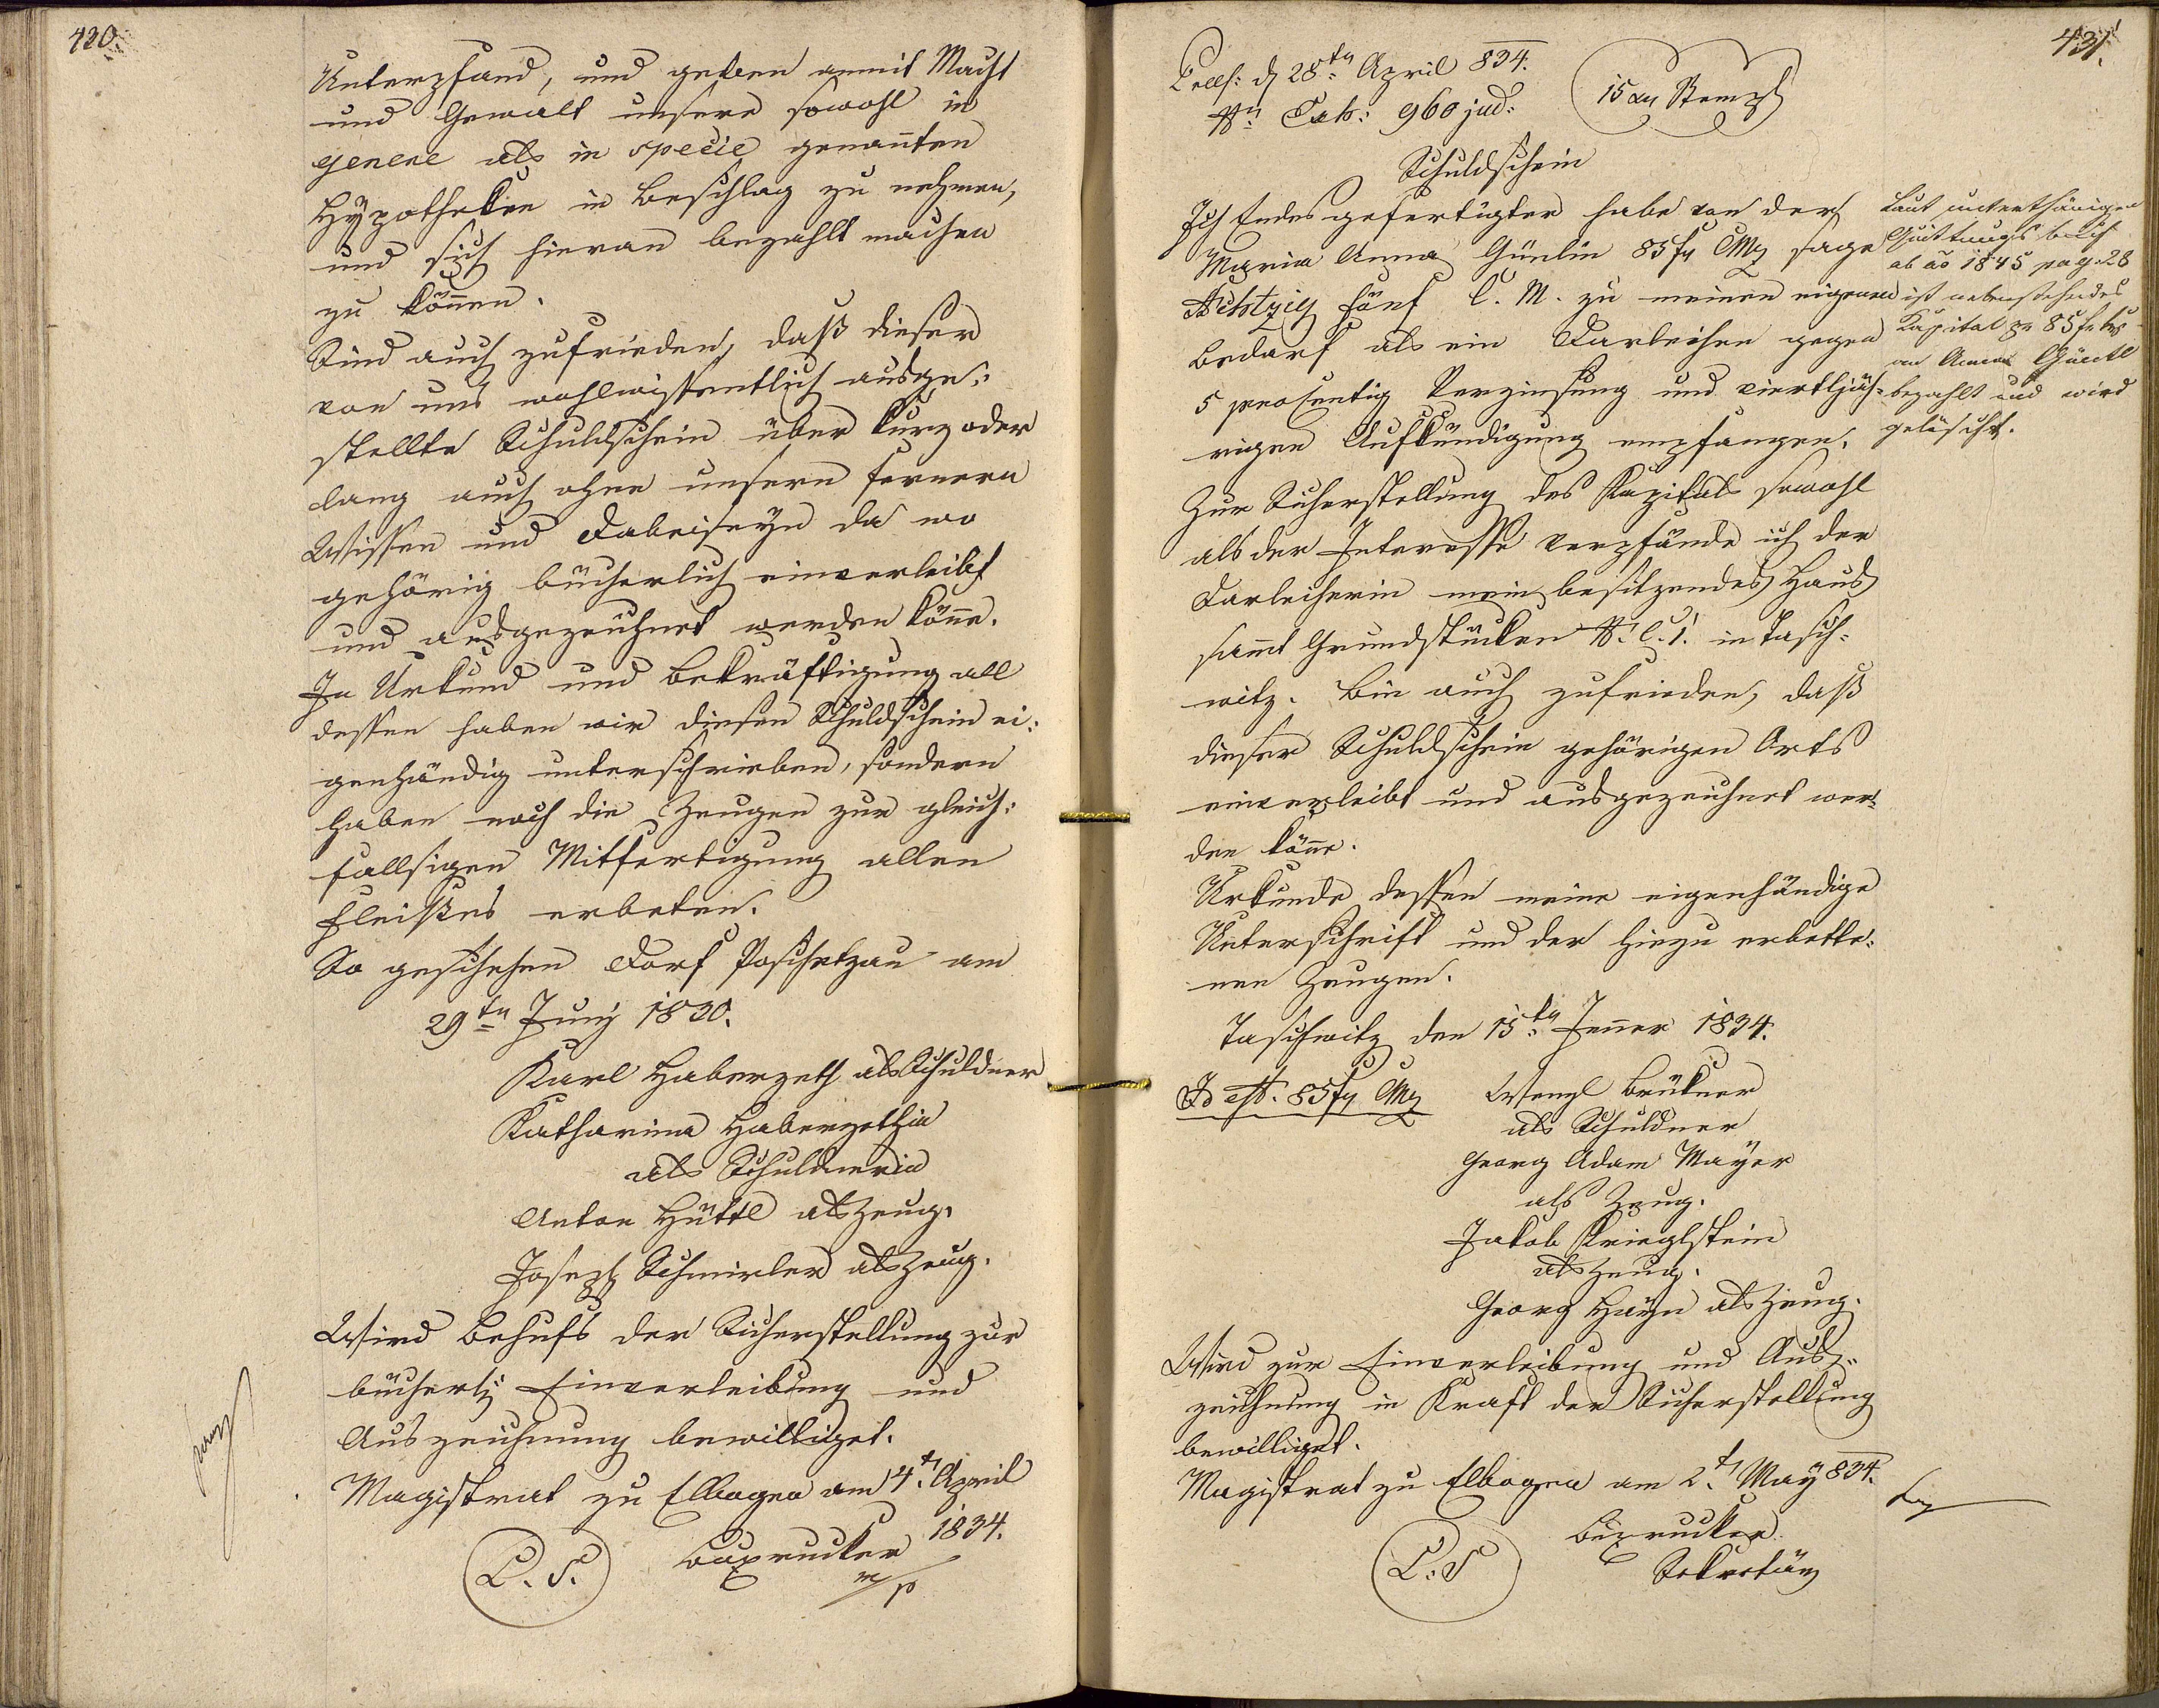 430.
Unterpfand, und geben anmit Macht
und Gewalt unsere sowohl in
genere als in specie genannten
Hypotheken in Beschlag zu nehmen,
und sich hieran bezahlt machen
zu können.
Sind auch zufrieden, daß dieser
von uns wohlwissentlich ausge-
stellte Schuldschein über kurz oder
lang auch ohne unsern fernern
Wissen und Dabeiseyn da wo
gehörig bücherlich einverleibt
und ausgezeichnet werden könne.
In Urkund und Bekräftigung all
dessen haben wir diesen Schuldschein ei-
genhändig unterschrieben, sondern
haben noch die Zeugen zur gleich-
fallsigen Mitfertigung allen
Fleißes erbeten.
So geschehen Dorf Poschetzau am
29ten Juny 1830.
Karl Haberzeth als Schuldner
Katharina Haberzethin
als Schuldnerin
Anton Hüttl als Zeug.
Joseph Schmieler als Zeug.
Wird Behufs der Sicherstellung zur
bücherl. Einverleibung und
Auszeichnung bewilliget.
Magistrat zu Elbogen am 4t. April
1834.
L. S. Buxrucker
m/p
431.
Praes: d 28ten April 834.
N. Exh: 960 jud: 15 xr Stempl
Schuldschein
Ich Endesgefertigter habe von der
Maria Anna Güntin 85 f CMz sage
Achtzig fünf C. M. zu meinen eigenen
Bedarf als ein Darleihen gegen
5 prosentig Verzinsung und viertljäh-
rigen Aufkündigung empfangen.
Zur Sicherstellung des Kapitals sowohl
als der Interesse verpfände ich der
Darleiherin mein besitzendes Haus
sammt Grundstücken N. C. 1. in Tasch-
witz. Bin auch zufrieden, daß
dieser Schuldschein gehörigen Orts
einverleibt und ausgezeichnet wer-
den könne.
Urkunde dessen meine eigenhändige
Unterschrift und der hiezu erbette-
nen Zeugen.
Taschwitz den 15ten Jenner 1834.
Id est. 85 f CMz Wenzl Brükner
als Schuldner
Georg Adam Mayer
als Zeug.
Jakob Krieglstein
als Zeug.
Georg Hayn als Zeug.
Wird zur Einverleibung und Aus-
zeichnung in Kraft der Sicherstellung
bewilliget.
Magistrat zu Elbogen am 2t. May 834.
L. S Buxrucker
Sekretär
Laut unterthänigen
Quittungsbuch
ab ao 1845 pag. 28
ist nebenstehendes
Kapital pr 85 f
an Anna Güntl
bezahlt und wird
gelöscht.